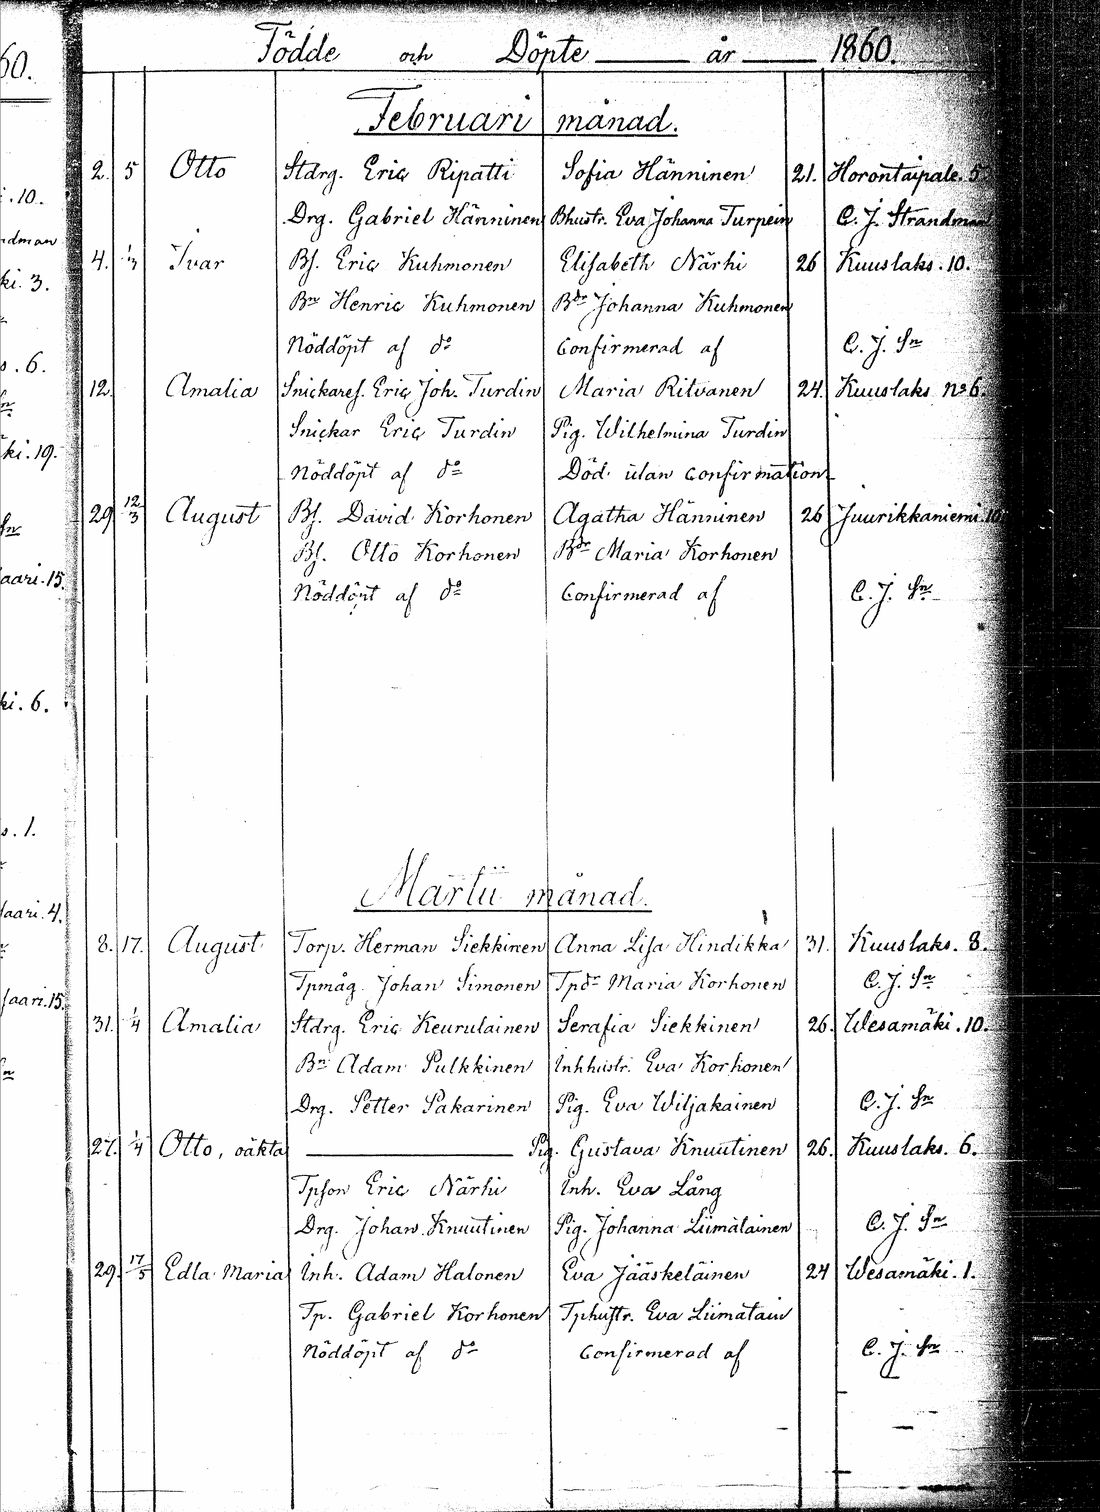 60.
Födde och Döpte år 1860.
Februari månad.
2. 5 Otto Stdrg. Eric Ripatti Sofia Hänninen 21. Horontaipale. 5
i. 10.
Drg. Gabriel Hänninen Bhustr. Eva Johanna Turpein C. J. Strandman
ndman
4. 1/3 Ivar Bf. Eric Kuhmonen Elisabeth Närhi 26 Kuuslaks. 10.
ki. 3.
Bn Henric Kuhmonen Bdr Johanna Kuhmonen
Nöddöpt af do Confirmerad af C. J. Sn
s. 6.
12. Amalia Snickares. Eric Joh. Turdin Maria Ritvanen 24. Kuuslaks No 6.
Snickar Eric Turdin Pig. Wilhelmina Turdin
ki. 19.
Nöddöpt af do Död utan Confirmation
29 12/3 August Bf. David Korhonen Agatha Hänninen 26 Juurikkaniemi. 10
Bf. Otto Korhonen Bdr Maria Korhonen
aari. 15.
Nöddöpt af do Confirmerad af C. J. Sn
ki. 6.
s. 1.
Martii månad.
aari. 4.
8. 17. August Torp. Herman Siekkinen Anna Lisa Hindikka 31. Kuuslaks. 8.
Tpmåg. Johan Simonen Tpdr Maria Korhonen C. J. Sn
aari. 15.
31. 1/4 Amalia Stdrg. Eric Keurulainen Serafia Siekkinen 26. Wesamäki. 10.
Bn Adam Pulkkinen Inhhustr. Eva Korhonen
Drg. Petter Pakarinen Pig. Eva Wiljakainen C. J. Sn
27. 1/4 Otto, oäkta Pig. Gustava Knuutinen 26. Kuuslaks. 6.
Tpson Eric Närhi Inh. Eva Lång
Drg. Johan Knuutinen Pig. Johanna Liimatainen C. J. Sn
29. 17/5 Edla Maria Inh. Adam Halonen Eva Jääskeläinen 24 Wesamäki. 1.
Tp. Gabriel Korhonen Tphustr. Eva Liimatain
Nöddöpt af do Confirmerad af C. J. Sn